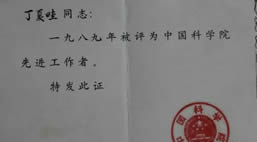 丁奚哇同志：
一九八九年被评为中国科学院
先进工作者。
特发此证
中国科学院